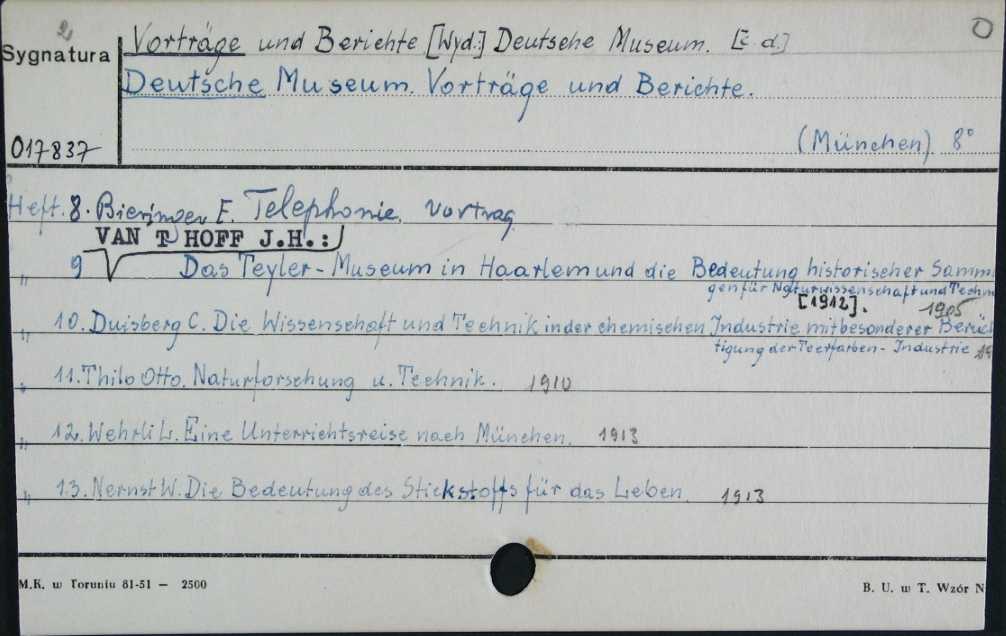 2
Vorträge und Berichte [Wyd.] Deutsche Museum. [c.d.]
O
Sygnatura
Deutsche Museum. Vorträge und Berichte.
017837
(München) 8°
Heft. 8. Bieringer F. Telephonie. Vortrag
VAN T HOFF J.H.:
" 9 Das Teyler-Museum in Haarlem und die Bedeutung historischer Samm
gen für Naturwissenschaft und Techn
[1912]. 1905
" 10. Duisberg C. Die Wissenschaft und Technik in der chemischen Industrie mit besonderer Berück
tigung der Teerfarben-Industrie
" 11. Thilo Otto. Naturforschung u. Technik. 1910
" 12. Wehrli L. Eine Unterrichtsreise nach München. 1913
" 13. Nernst W. Die Bedeutung des Stickstoffs für das Leben. 1913
M.K. w Toruniu 81-51 — 2500
B. U. w T. Wzór N